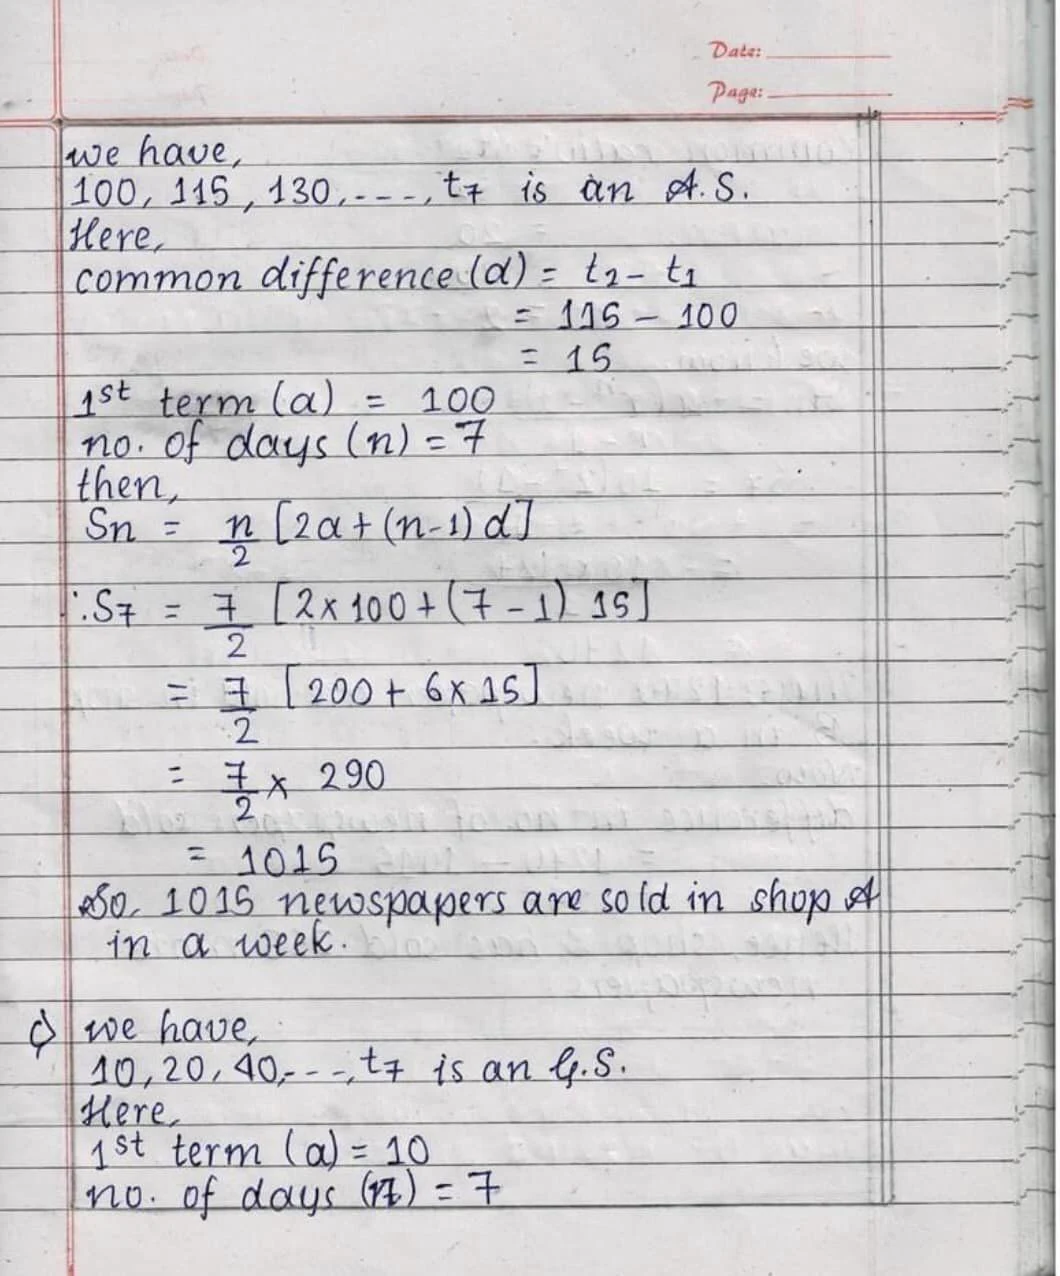 Date:
Page:
we have,
100, 115, 130, ----, t7 is an A.S.
Here,
common difference (d) = t2 - t1
= 115 - 100
= 15
1st term (a) = 100
no. of days (n) = 7
then,
Sn = n/2 [2a + (n-1) d]
∴ S7 = 7/2 [2 × 100 + (7 - 1) 15]
= 7/2 [200 + 6 × 15]
= 7/2 × 290
= 1015
So, 1015 newspapers are sold in shop A
in a week.
c) we have,
10, 20, 40, ---, t7 is an G.S.
Here,
1st term (a) = 10
no. of days (n) = 7